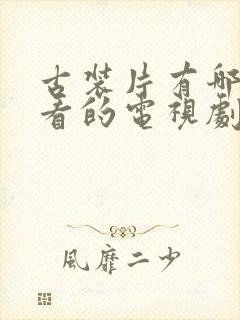 古裝片有哪
看的電視劇
風靡二少